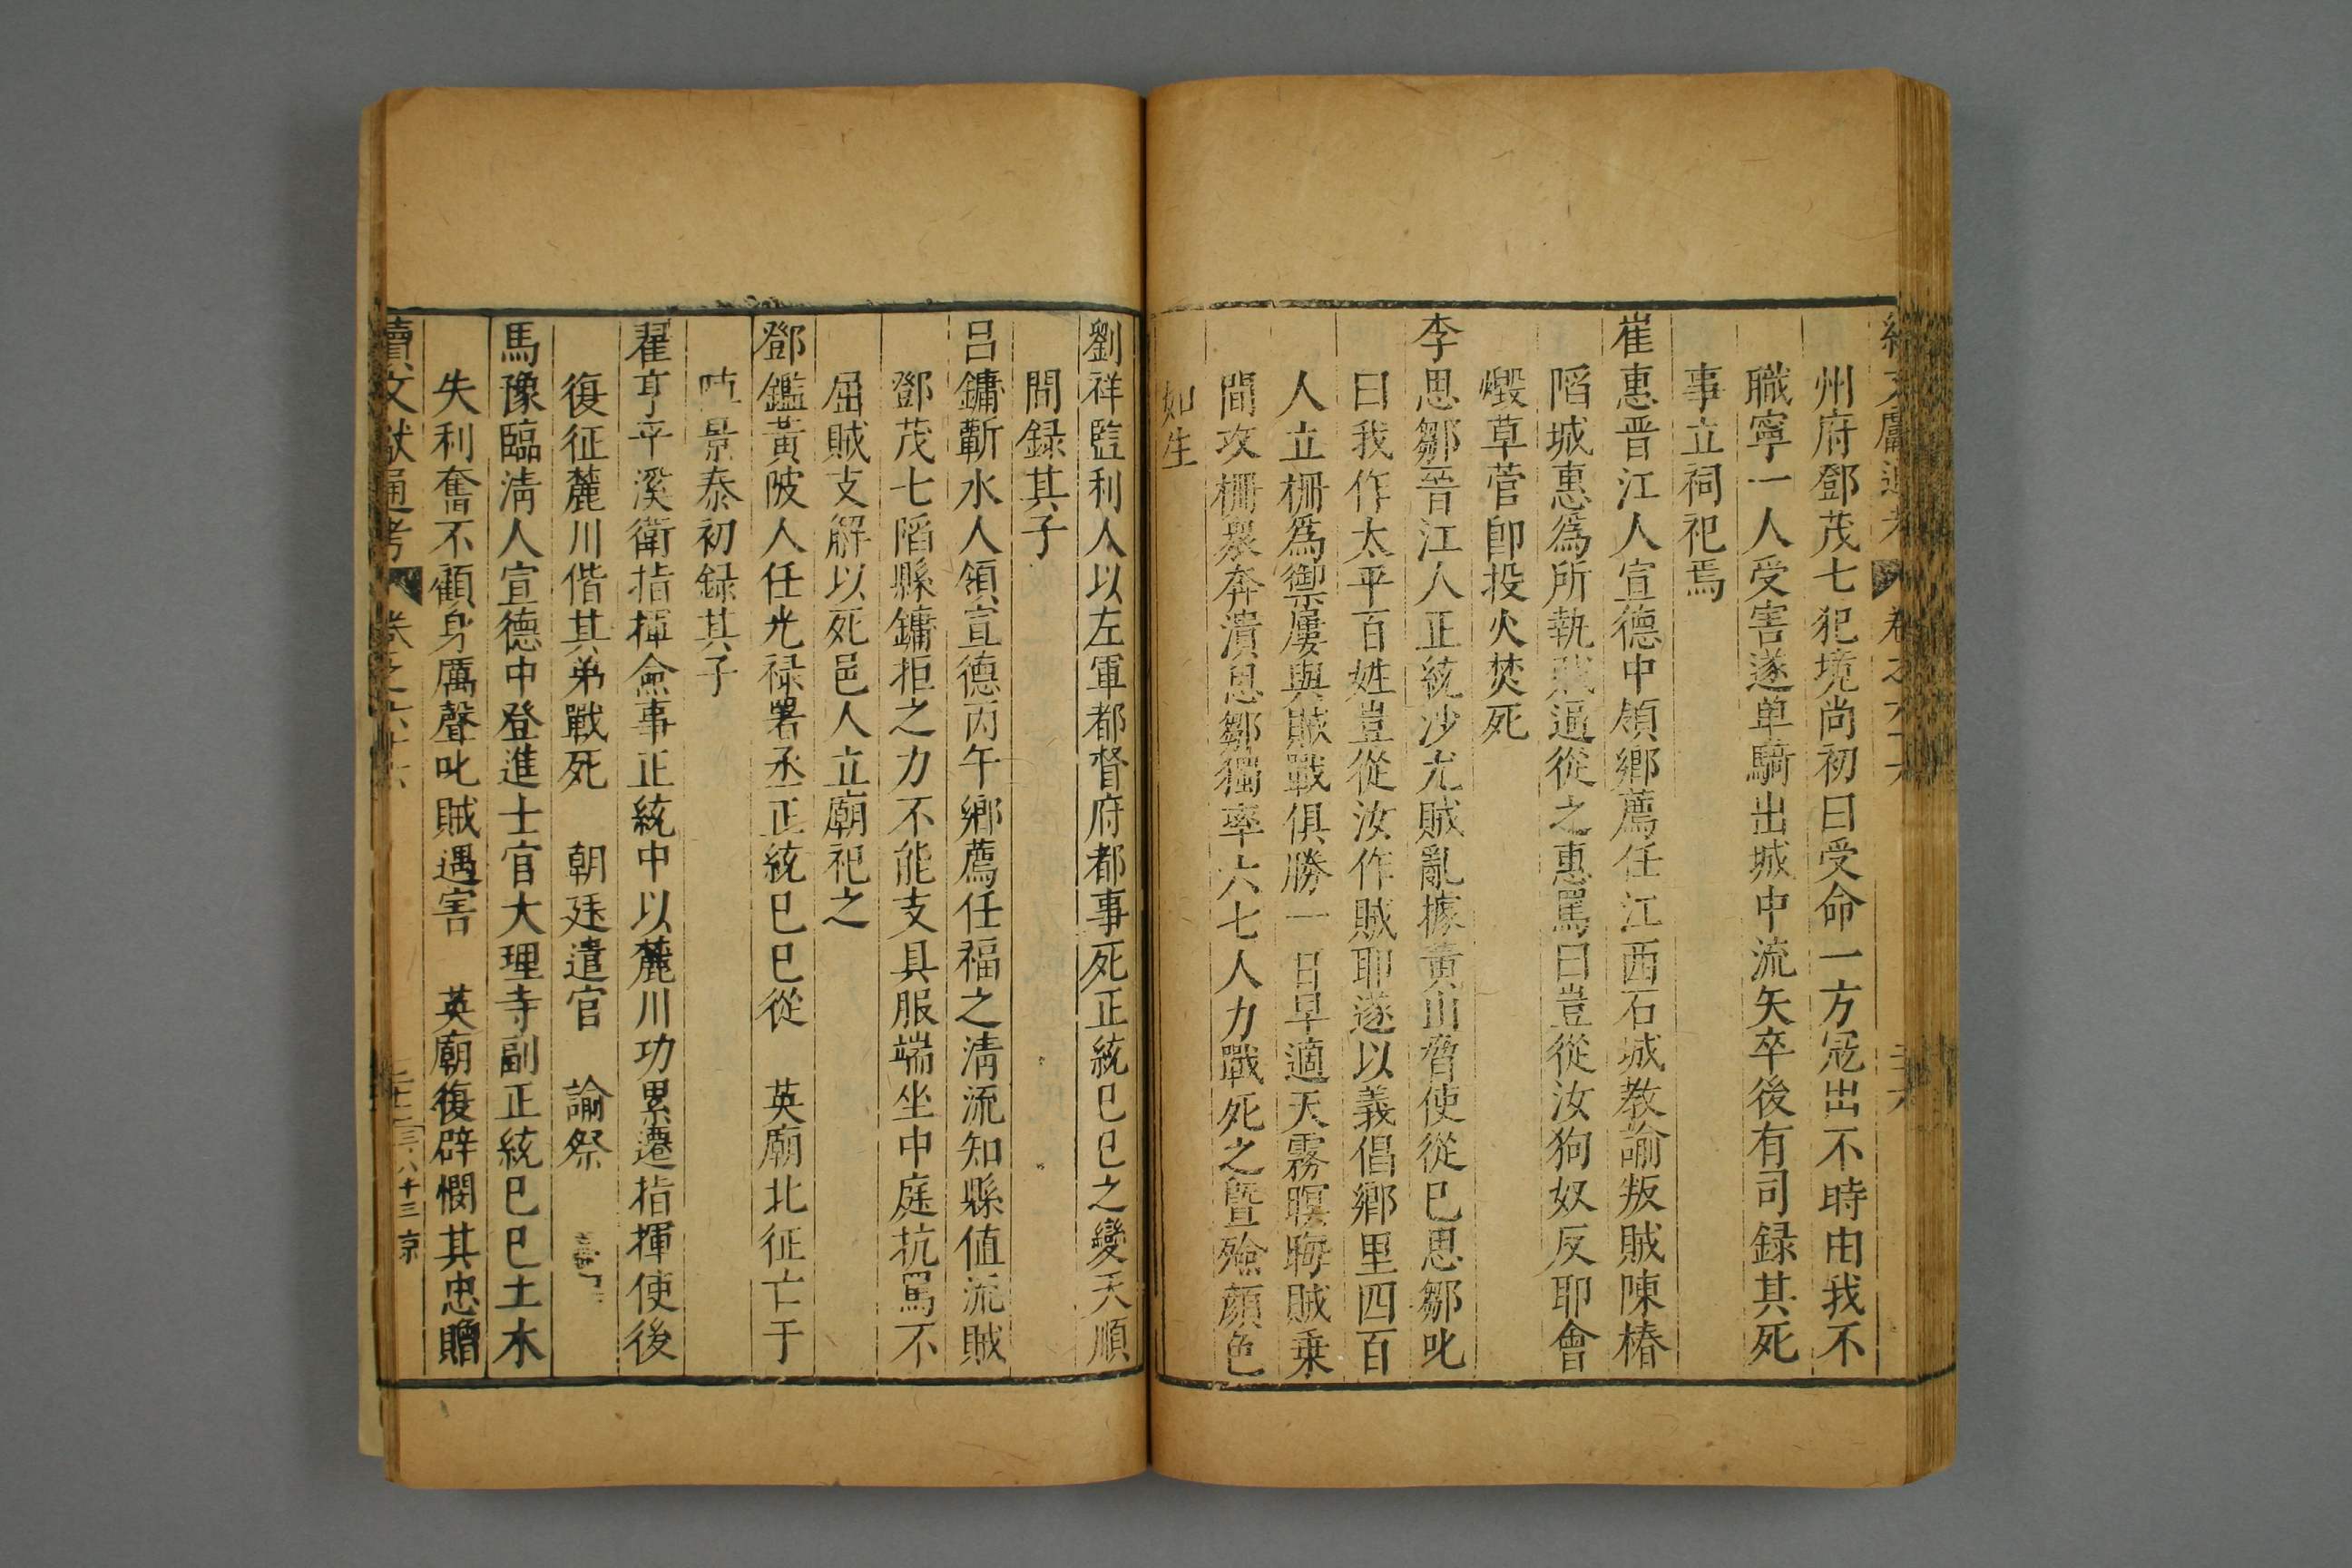 州府鄧茂七犯境尚初曰受命一方冦出不時由我不
職寧一人受害遂单騎出城中流矢卒後有司録其死
事立祠祀焉
崔惠晋江人宣德中領鄉薦任江西石城教諭叛賊陳椿
陷城惠爲所執賊逼從之惠罵曰豈從汝狗奴反耶會
燬草菅卽投火焚死
李思鄒晉江人正統沙尤賊亂據黄山脅使從已思鄒叱
曰我作太平百姓豈從汝作賊耶遂以義倡鄉里四百
人立柵爲禦屢與賊戰俱勝一日早適天霧暝晦賊乗
間攻柵衆奔潰思鄒獨率六七人力戰死之暨殮顔色
如生
劉祥監利人以左軍都督府都事死正統已巳之變天順
間録其子
吕鏞蘄水人領宣德丙午鄉薦任福之清流知縣值流賊
鄧茂七陷縣鏞拒之力不能支具服端坐中庭抗罵不
屈賊支解以死邑人立廟祀之
鄧鑑黃陂人任光禄署丞正統巳巳從 英廟北征亡于
景泰初録其子
翟亨平溪衛指揮僉事正統中以麓川功累遷指揮使後
復征麓川偕其弟戰死 朝廷遣官 諭祭
馬豫臨清人宣德中登進士官大理寺副正統巳巳土木
失利奮不顧身厲聲叱賊遇害 英廟復辟憫其忠贈
續文獻通考 卷之六十六